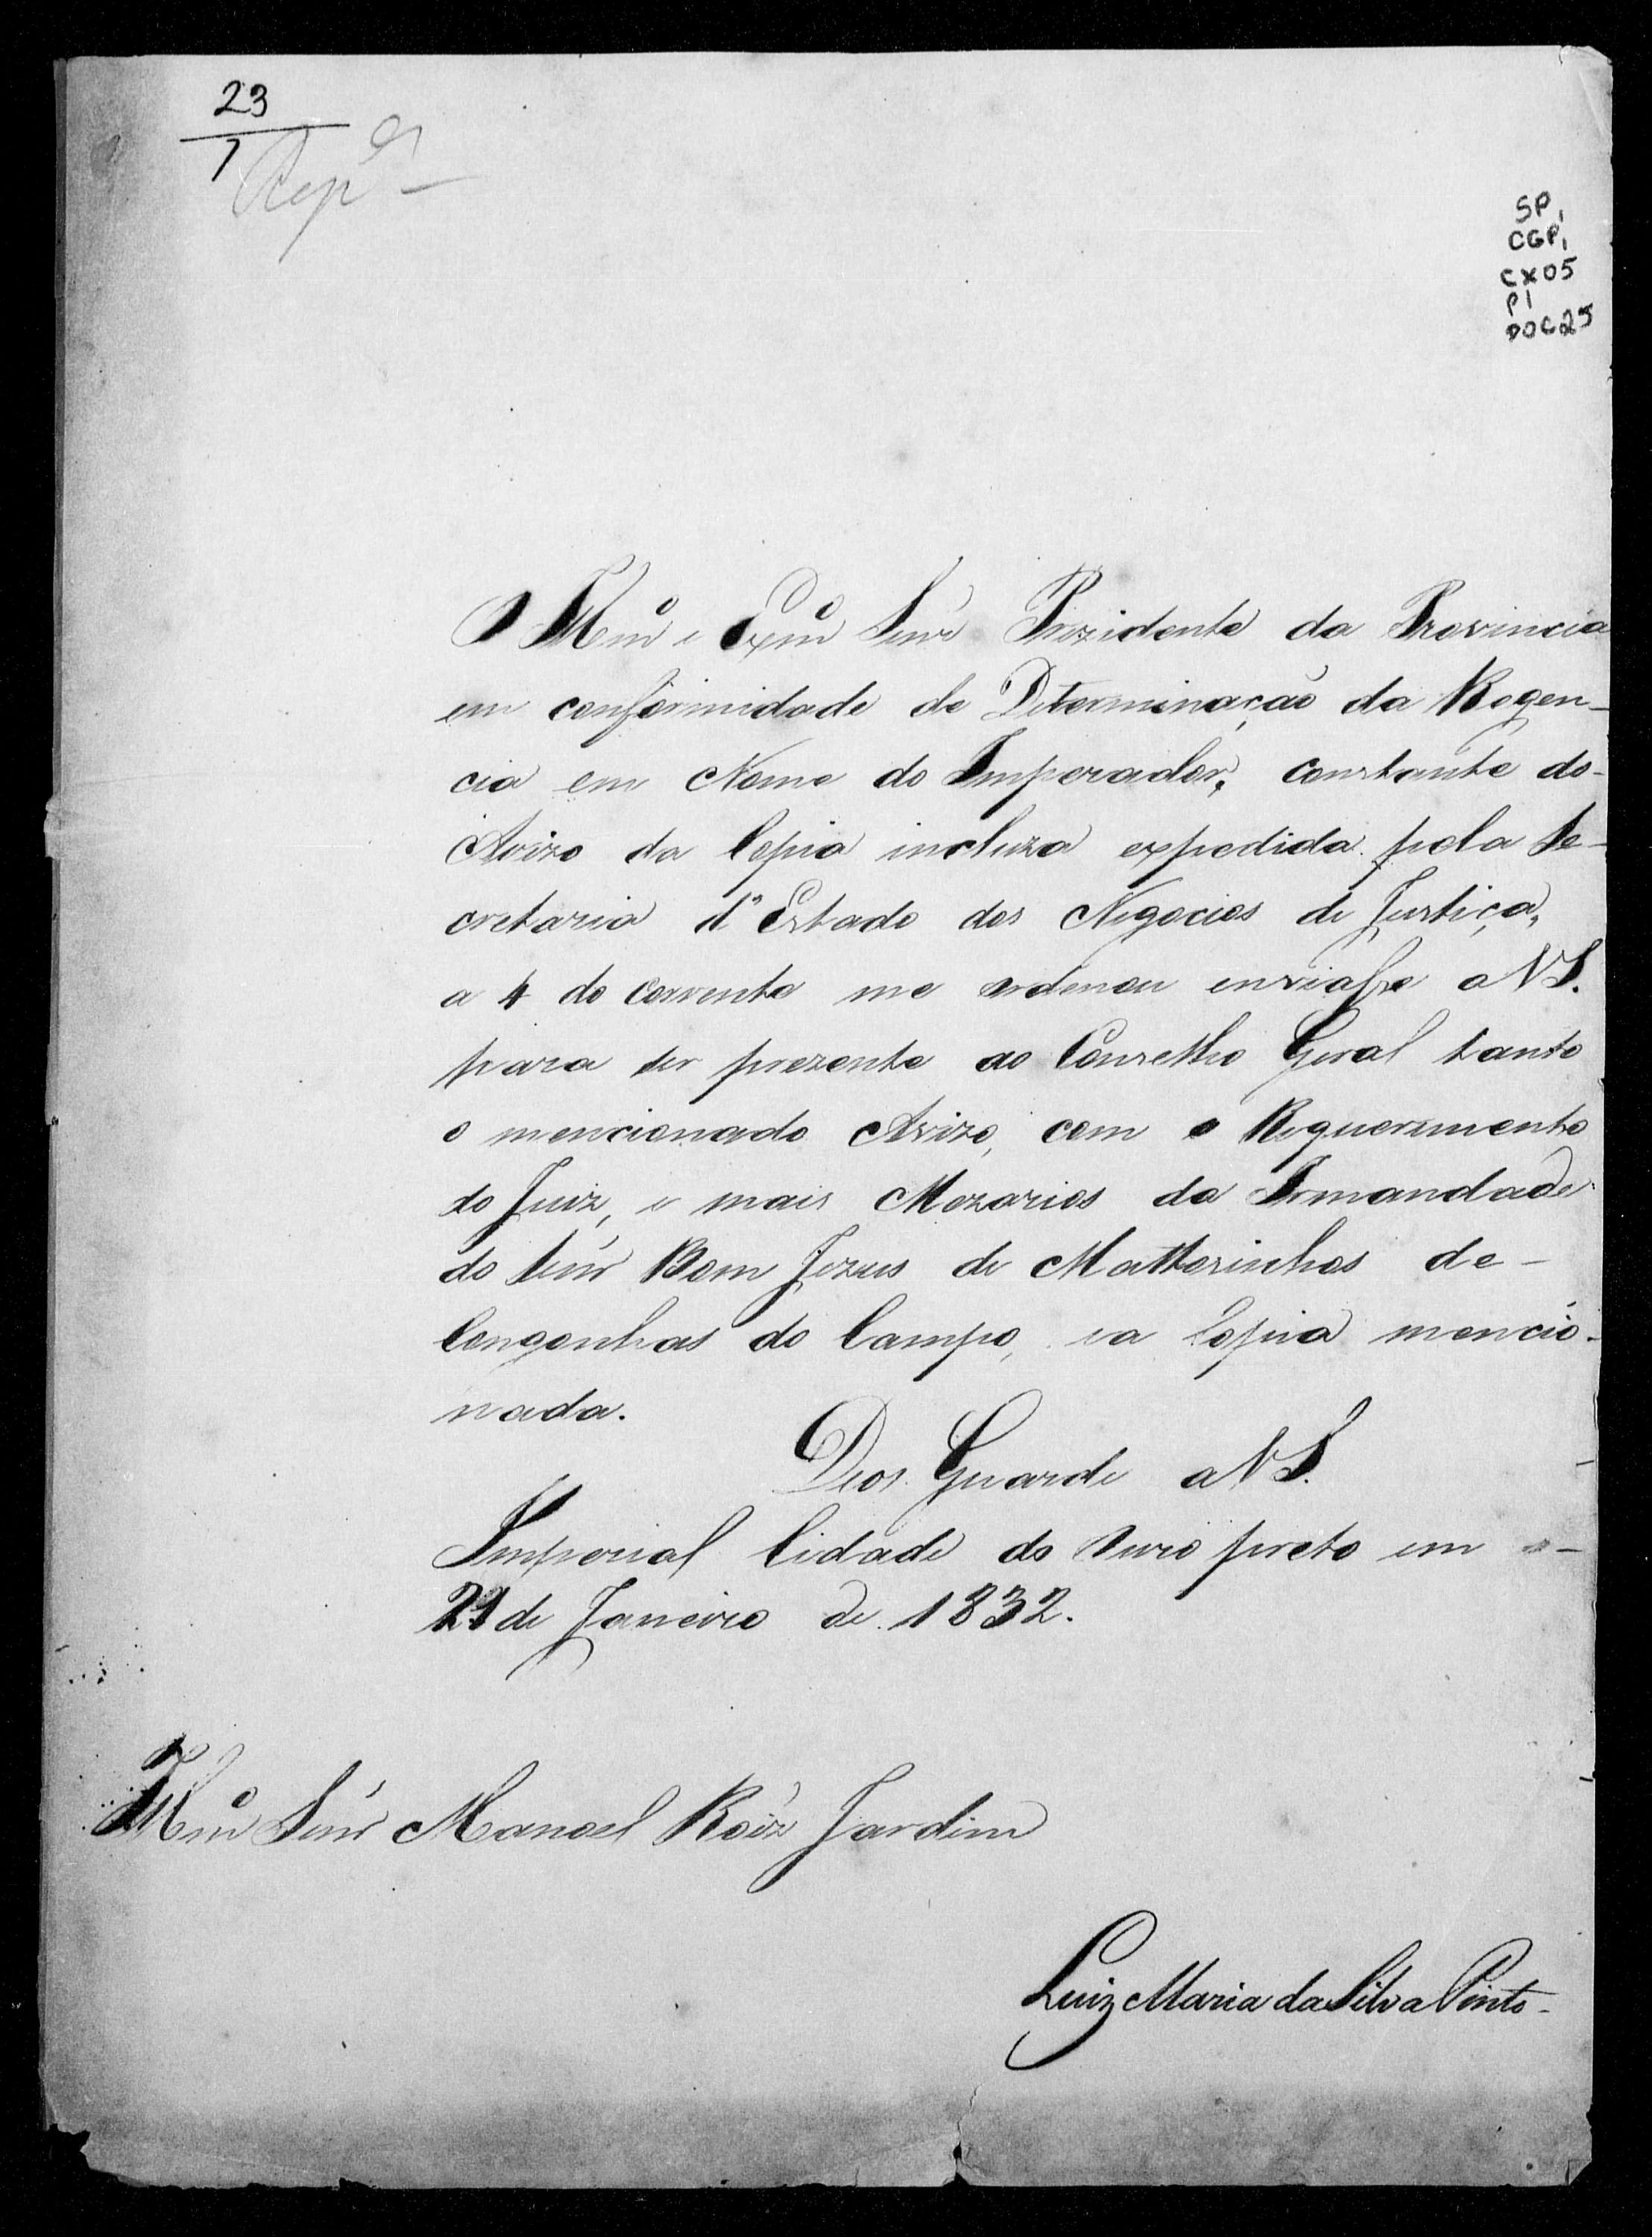 23
7
SP,
CGP,
CX05
P1
DOC25
O Illmo e Exmo Senr Prezidente da Provincia
em conformidade da Determinação da Regen-
cia em Nome do Imperador, constante do-
Avizo da Copia incluza expedida pela Se-
cretaria d'Estado dos Negocios de Justiça,
a 4 do corrente me ordenou enviasse a VS.
para ser prezente ao Conselho Geral tanto
o mencionado Avizo, com o Requerimento
do Juiz, e mais Mezarios da Irmandade
do Senr Bom Jezus de Mattosinhos de-
Congonhas do Campo, e a Copia mencio-
nada.
Deos Guarde a VS.
Imperial Cidade do Ouro preto em
21 de Janeiro de 1832.
Illmo Senr Manoel Roiz Jardim
Luiz Maria da Silva Pinto-